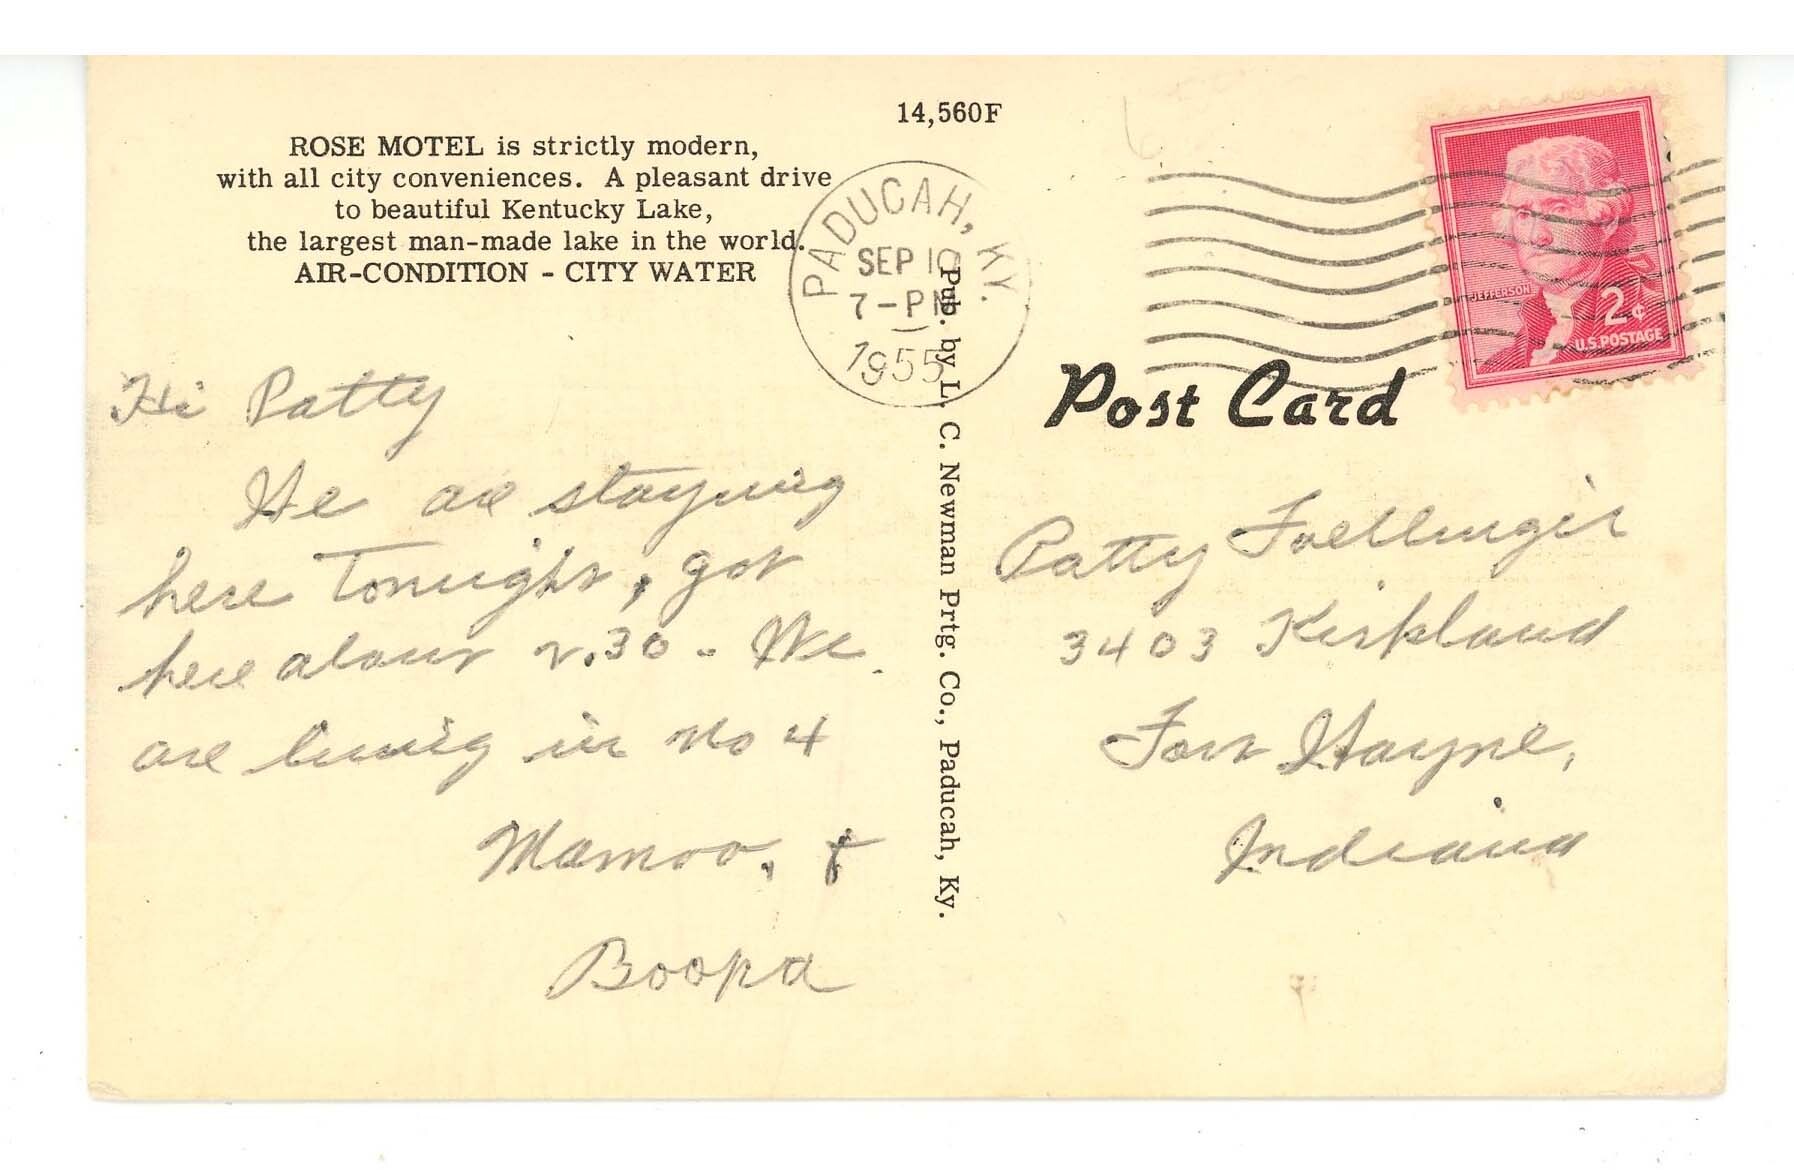 14,560F
ROSE MOTEL is strictly modern,
with all city conveniences. A pleasant drive
to beautiful Kentucky Lake,
the largest man-made lake in the world.
AIR-CONDITION - CITY WATER
PADUCAH, KY.
SEP 10
7-PM
1955
JEFFERSON
2¢
U.S. POSTAGE
Post Card
Pub. by L. C. Newman Prtg. Co., Paducah, Ky.
Hi Patty
We are staying
here Tonight, got
here about 2.30 - We
are living in No 4
Mamoo, +
Boopa
Patty Foellinger
3403 Kirkland
Fort Wayne,
Indiana